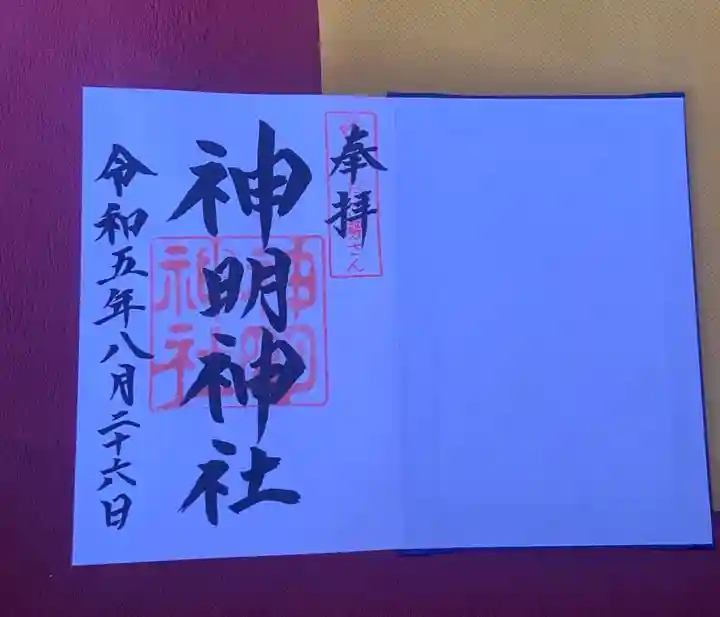 奉拝
神明神社
神明
神社
令和五年八月二十六日